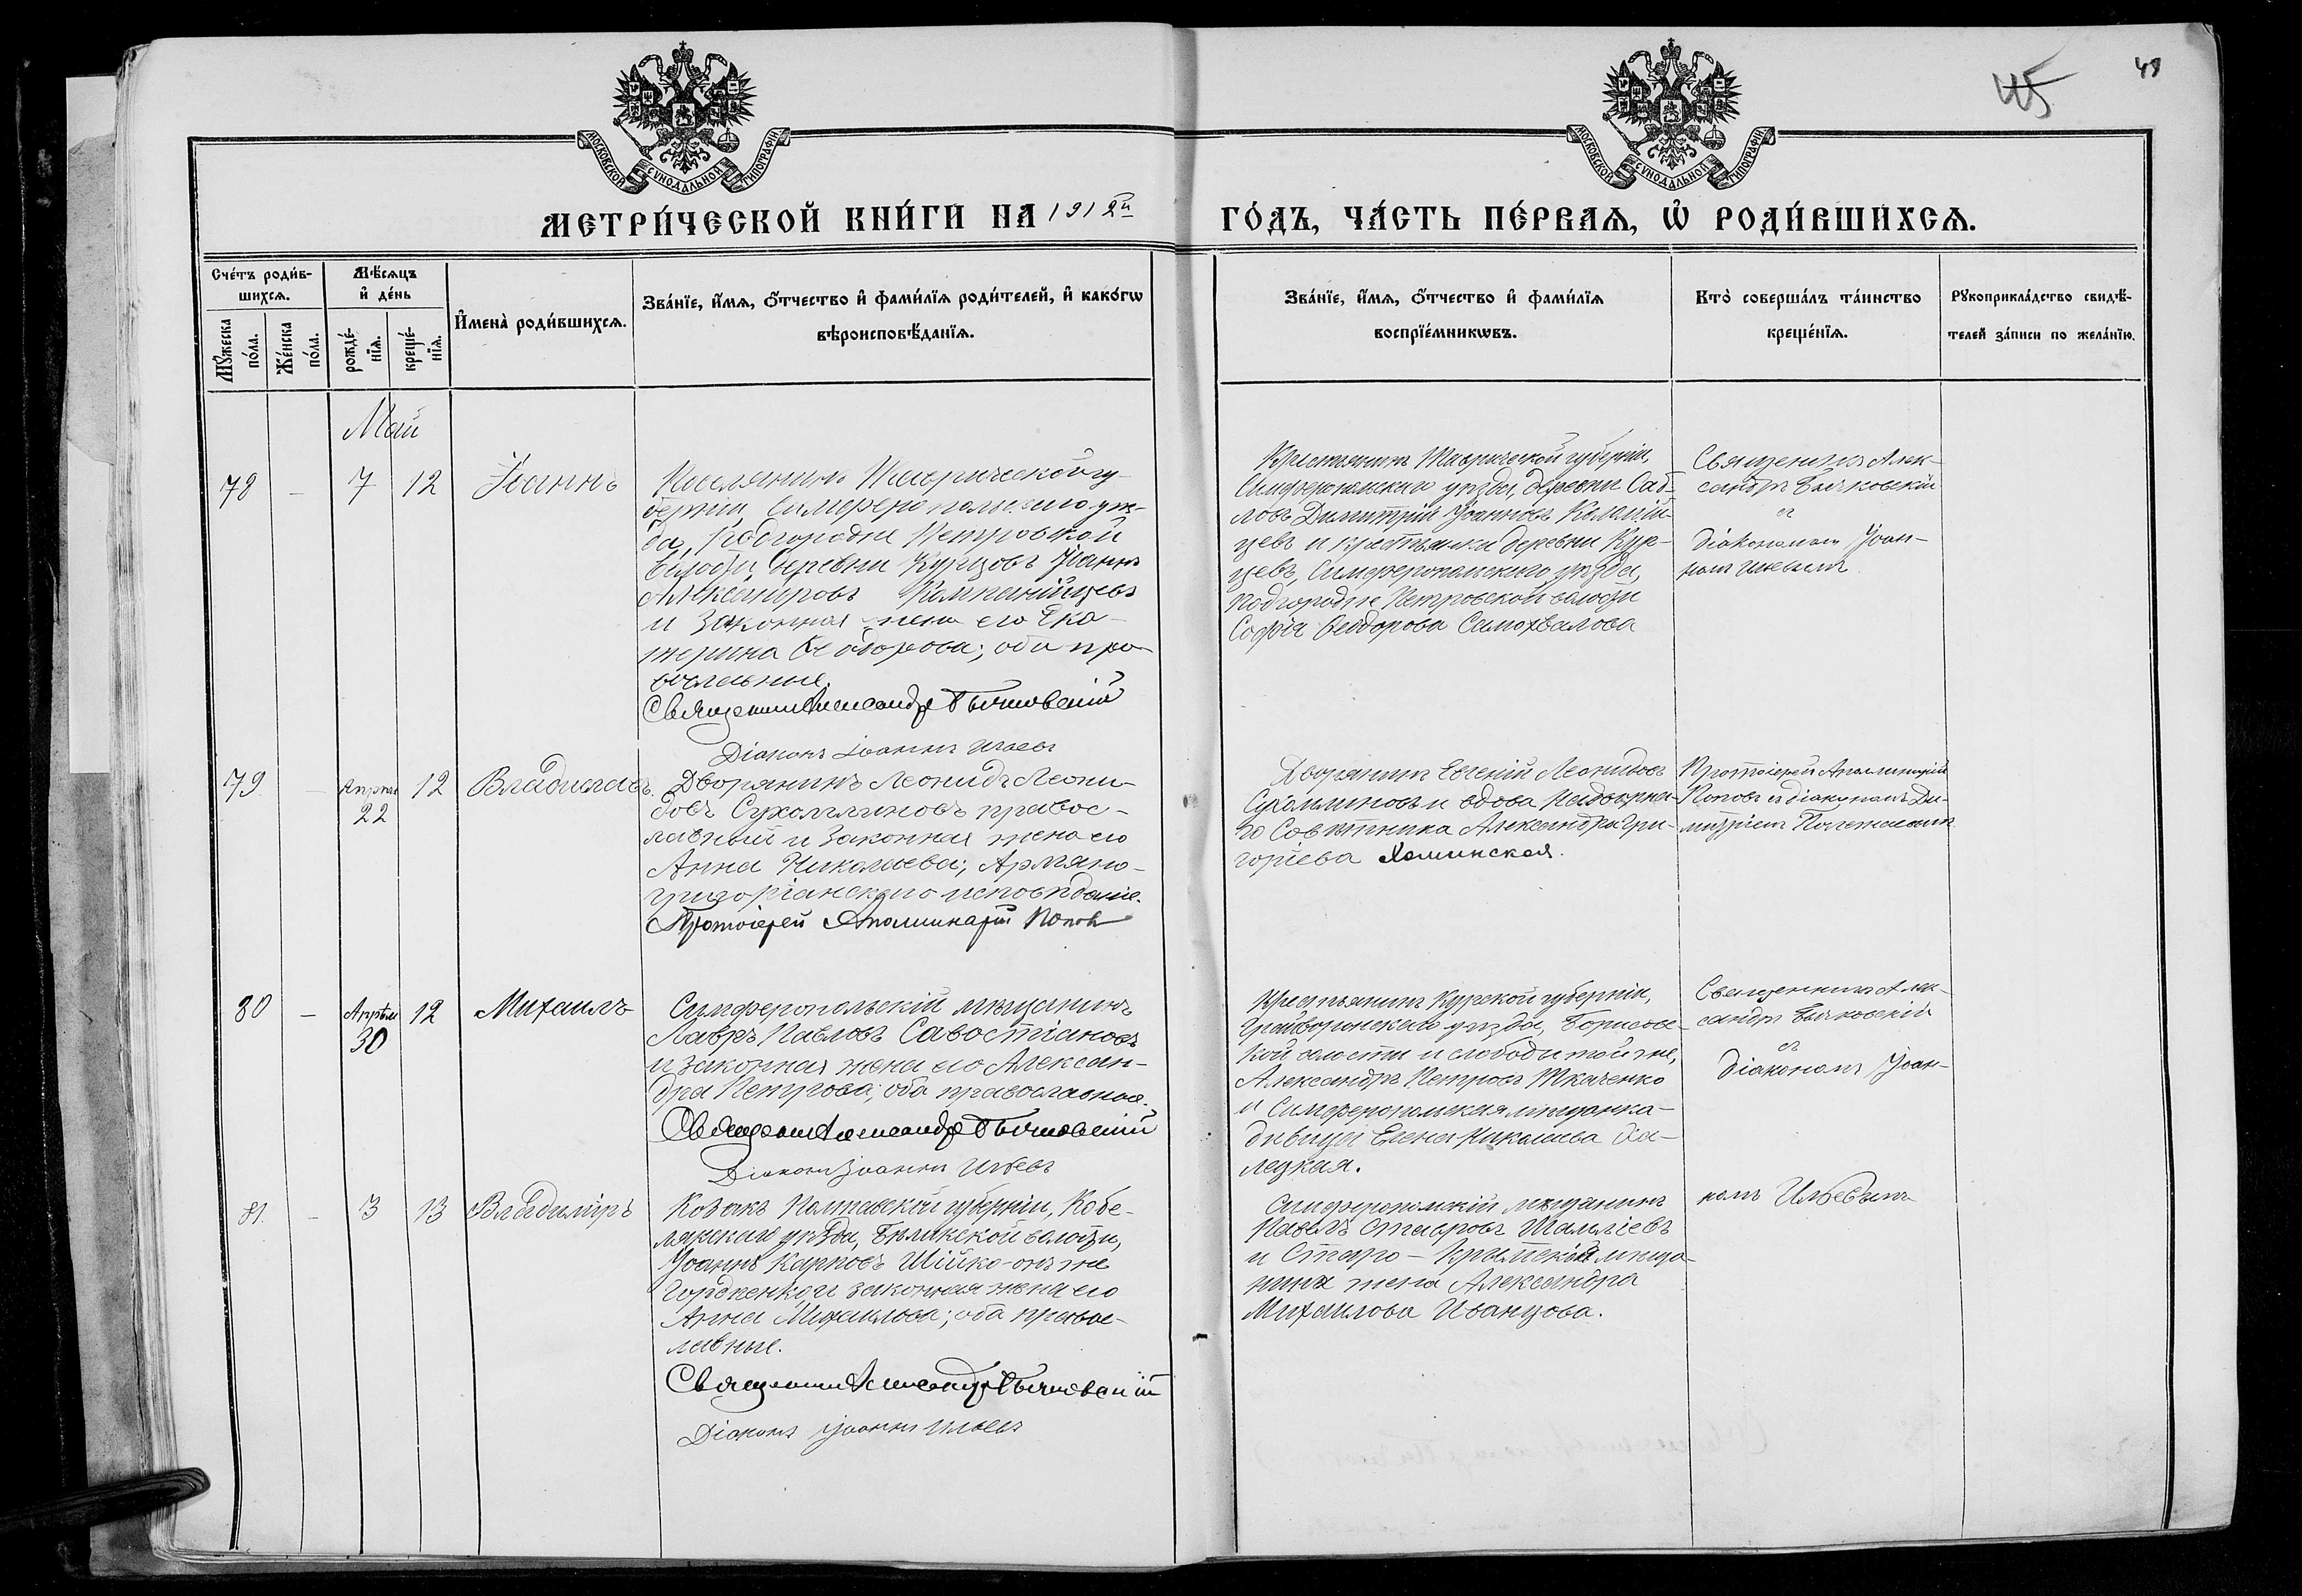 45
49
МОСКОВСКОЙ СѴНОДАЛЬНОЙ ТИПОГРАФІИ
МОСКОВСКОЙ СѴНОДАЛЬНОЙ ТИПОГРАФІИ
МЕТРИ́ЧЕСКОЙ КНИ́ГИ НА 1912й ГО́ДЪ, ЧА́СТЬ ПЕ́РВАѦ, Ѡ҆ РОДИ́ВШИХСѦ.
Сче́тъ роди́в-
шихсѧ.
Мꙋ́жеска
по́ла.
Же́нска
по́ла.
Мѣ́сѧцъ
и҆ де́нь
рожде́-
нїѧ.
креще́-
нїѧ.
И҆мена̀ роди́вшихсѧ.
Зва́нїе, и҆́мѧ, ѻ҆́тчество и҆ фами́лїѧ роди́телей, и҆ како́гѡ
вѣроисповѣ́данїѧ.
Зва́нїе, и҆́мѧ, ѻ҆́тчество и҆ фами́лїѧ
воспрїе́мникѡвъ.
Кто̀ соверша́лъ та́инство
креще́нїѧ.
Рꙋкоприкла́дство свидѣ́-
телей за́писи по жела́нїю.
Май
78
–
7
12
Іоаннъ
Поселянинъ Таврической гу-
берніи Симферопольскаго уѣз-
да, Подгородне Петровской
волости, деревни Курцовъ Іоаннъ
Александровъ Компанійцевъ
и законная жена его Ека-
терина Ѳеодорова; оба пра-
вославные.
Священникъ Александръ Бычковскій
Діаконъ Іоаннъ Ильевъ
Крестьянинъ Таврической губерніи,
Симферопольскаго уѣзда, деревни Саб-
ловъ Димитрій Іоанновъ Компаній-
цевъ и крестьянка деревни Кур-
цевъ, Симферопольскаго уѣзда,
Подгородне Петровской волости
Софія Ѳеодорова Самохвалова
Священникъ Алек-
сандръ Бычковскій
съ
Діакономъ Іоан-
номъ Ильевымъ
79
–
Апрѣля
22
12
Владиславъ.
Дворянинъ Леонидъ Леони-
довъ Сухомлиновъ правос-
лавный и законная жена его
Анна Николаева; Армяно-
григоріанскаго исповѣданія.
Протоіерей Аполлинарій Поповъ
Дворянинъ Евгеній Леонидовъ
Сухомлиновъ и вдова Надворна-
го Совѣтника Александра Гри-
горіева Хоминская.
Протоіерей Аполлинарій
Поповъ съ діакономъ Ди-
митріемъ
80
–
Апрѣля
30
12
Михаилъ
Симферопольскій мѣщанинъ
Лавръ Павловъ Савостіановъ
и законная жена его Алексан-
дра Петрова; оба православные.
Священникъ Александръ Бычковскій
Діаконъ Іоаннъ Ильевъ
Крестьянинъ Курской губерніи,
Грайворонскаго уѣзда, Борисовс-
кой волости и слободы той же,
Александръ Петровъ Ткаченко
и Симферопольская мѣщанка-
дѣвица Елена Николаева Ха-
лецкая.
Священникъ Алек-
сандръ Бычковскій
съ
Діакономъ Іоан-
81.
–
3
13
Владиміръ
Козакъ Полтавской губерніи, Кобе-
лякскаго уѣзда, Бѣликской волости,
Іоаннъ Карповъ Шійко-онъ же
Гордіенко и законная жена его
Анна Михаилова; оба правос-
лавные.
Священникъ Александръ Бычковскій
Діаконъ Іоаннъ Ильевъ
Симферопольскій мѣщанинъ
Павелъ Ставровъ
и Старо-Крымскаго мѣща-
нина жена Александра
Михаилова Иванцова.
номъ Ильевымъ